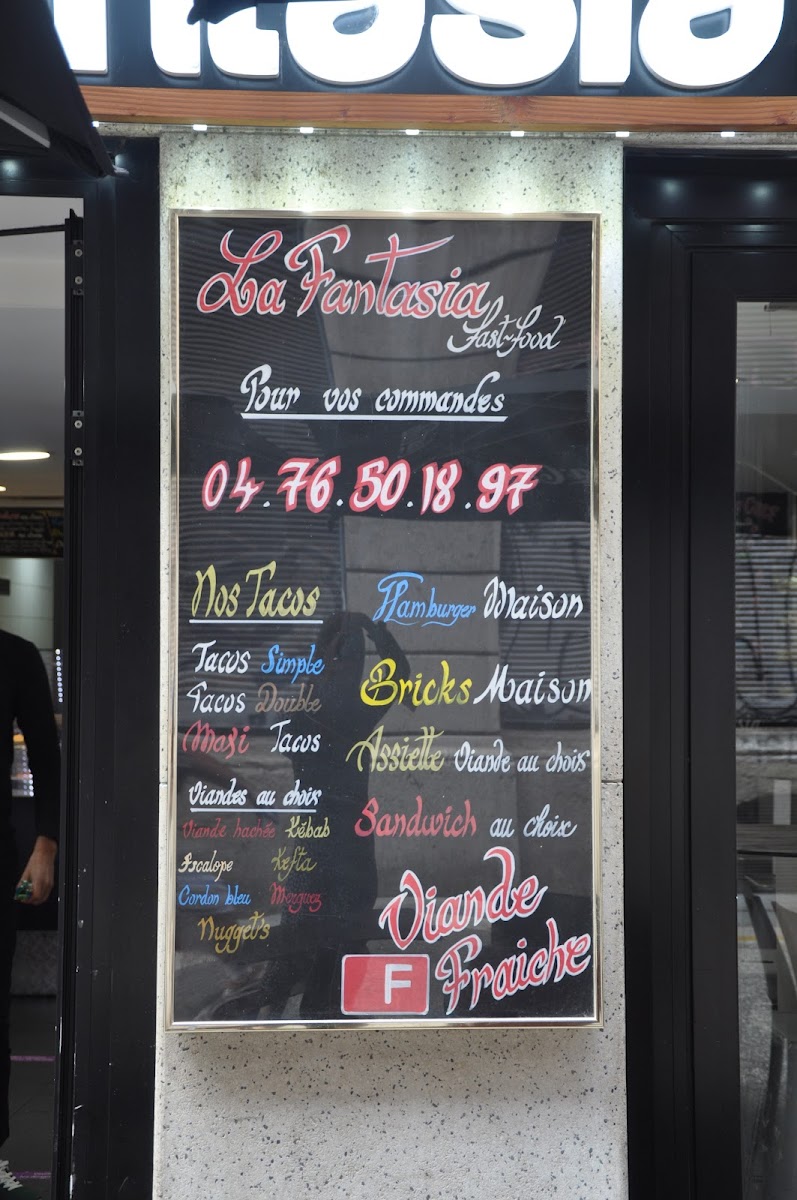 La Fantasia
Fast-food
Pour vos commandes
04.76.50.18.97
Nos Tacos
Tacos Simple
Tacos Double
Maxi Tacos
Viandes au choix
Viande hachée Kébab
Escalope Kefta
Cordon bleu Merguez
Nugget's
Hamburger Maison
Bricks Maison
Assiette Viande au choix
Sandwich au choix
Viande
F Fraiche